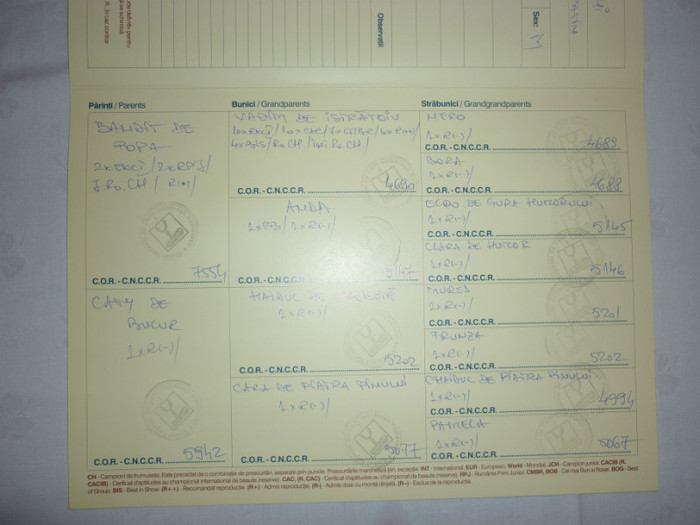 Observații
Sex:
M
Părinți / Parents
BANDIT DE
POPA
2xEXC/ / 2xRSJ/
J.Ro.CH / R(+)/
C.O.R.-C.N.C.C.R. 7554
CATY DE
BUCUR
1xR(-)/
C.O.R.-C.N.C.C.R. 5942
Bunici / Grandparents
VADIM DE ISTRĂTOIU
C.O.R.-C.N.C.C.R. 4690
ANDA
1xFB/ 1xR(-)/
C.O.R.-C.N.C.C.R. 5147
HAIDUC DE
1xR(-)/
C.O.R.-C.N.C.C.R. 5202
CARA DE PIATRA PINULUI
1xR(-)/
C.O.R.-C.N.C.C.R. 5077
Străbunici / Grandgrandparents
NERO
1xR(-)/
C.O.R.-C.N.C.C.R. 4689
BORA
1xR(-)/
C.O.R.-C.N.C.C.R. 4688
ECRO DE GURA HUMORULUI
1xR(-)/
C.O.R.-C.N.C.C.R. 5145
CLARA DE HUMOR
1xR(-)/
C.O.R.-C.N.C.C.R. 5146
MUREȘ
1xR(-)/
C.O.R.-C.N.C.C.R. 5201
FRUNZA
1xR(-)/
C.O.R.-C.N.C.C.R. 5202
DE PIATRA PINULUI
1xR(-)/
C.O.R.-C.N.C.C.R. 4994
PAMELA
1xR(-)/
C.O.R.-C.N.C.C.R. 5067
CH - Campion de frumusețe. Este precedat de o combinație de prescurtări, separate prin puncte. Prescurtările marchează țări, excepție. INT - International, EUR - European, World - Mondial, JCH - Campion junior. CACIB (R.
CACIB) - Certificat d'aptitudes au championnat international de beauté (reserve). CAC, (R. CAC) - Certificat d'aptitudes au championnat de beauté (reserve). RPJ - România Prim Junior. CMBR, BOB - Cel mai Bun al Rasei. BOG - Best
of Group. BIS - Best in Show. (R++) - Recomandat reproducție. (R+) - Admis reproducție. (R-) - Admis doar cu montă dirijată. (R--) - Exclus de la reproducție.